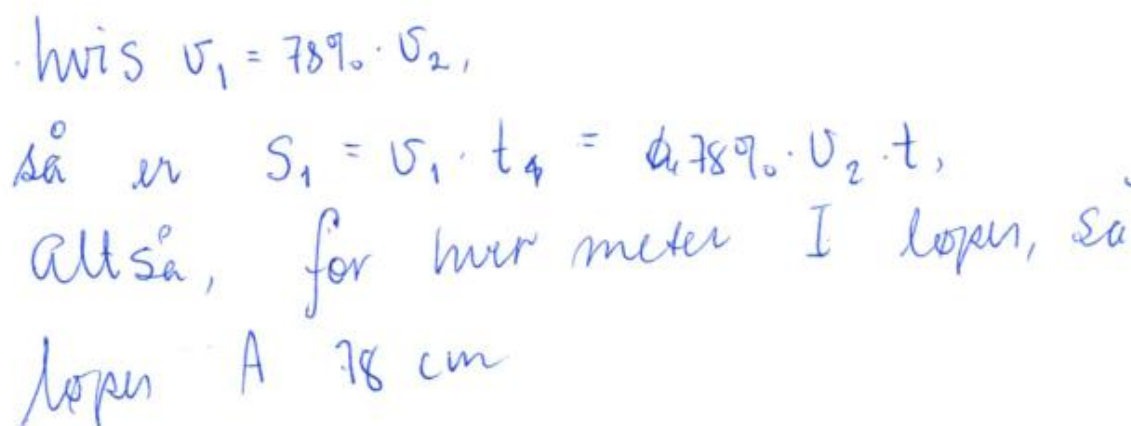 hvis v₁ = 78% · v₂,
så er S₁ = v₁ · t = 78% · v₂ · t,
Altså, for hver meter I løper, så
løper A 78 cm